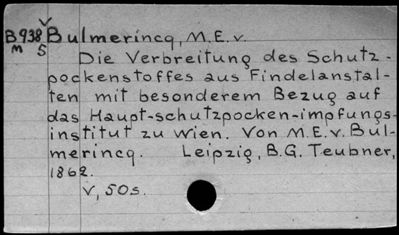 v
B938 Bulmerincq, M.E.v.
M 5
Die Verbreitung des Schutz-
pockenstoffes aus Findelanstal-
ten mit besonderem Bezug auf
das Haupt-schutzpocken-impfungs-
institut zu Wien. Von M.E.v. Bul-
merincq. Leipzig, B.G. Teubner,
1862.
v, 50s.